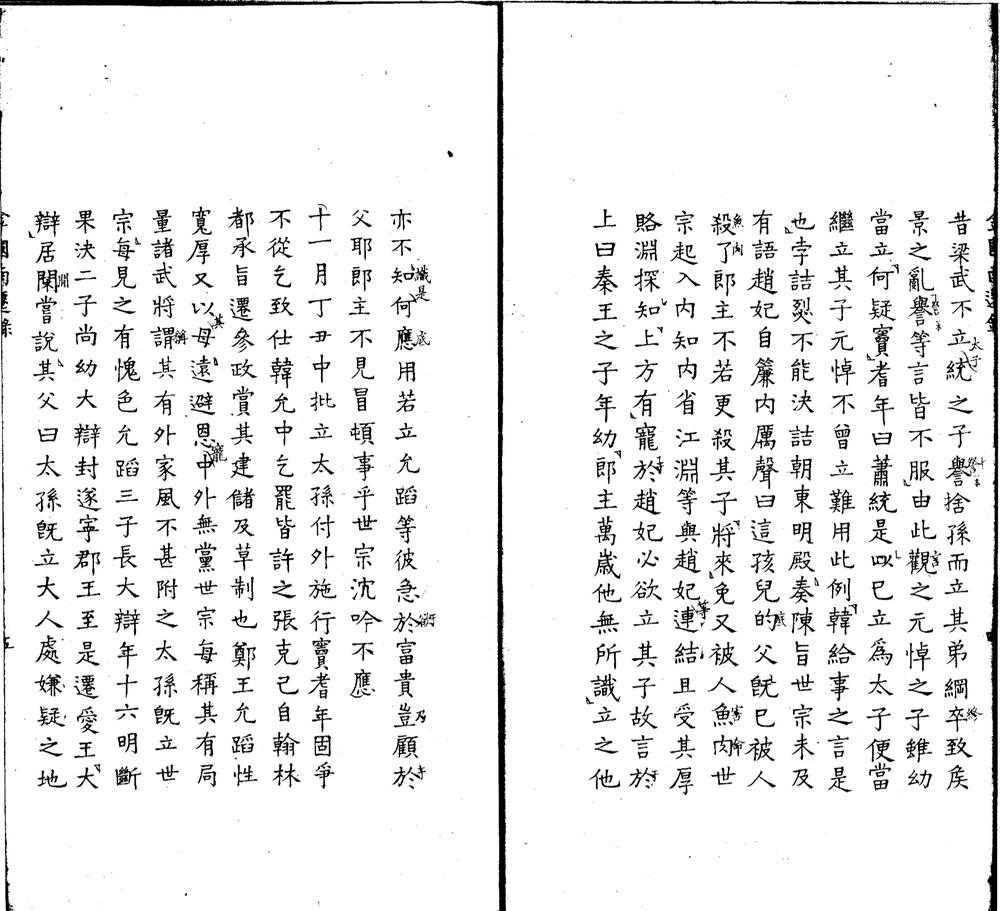 昔梁武不立統之子譽捨孫而立其弟綱卒致矦
景之亂譽等言皆不服由此觀之元悼之子雖幼
當立何疑竇耆年曰蕭統是時已立為太子便當
繼立其子元悼不曾立難用此例韓給事之言是
也孛詰烈不能決詰朝東明殿奏陳旨世宗未及
有語趙妃自簾内厲聲曰這孩兒的父旣已被人
殺了郎主不若更殺其子將來免又被人魚肉世
宗起入内知内省江淵等與趙妃連結且受其厚
賂淵探知上方有寵於趙妃必欲立其子故言於
上曰秦王之子年幼郎主萬歳他無所識立之他
亦不知何應用若立允蹈等彼急於富貴豈顧於
父耶郎主不見冒頓事乎世宗沈吟不應
十一月丁丑中批立太孫付外施行竇耆年固爭
不從乞致仕韓允中乞罷皆許之張克己自翰林
都承旨遷參政賞其建儲及草制也鄭王允蹈性
寬厚又以母遠避恩中外無黨世宗每稱其有局
量諸武將謂其有外家風不甚附之太孫旣立世
宗每見之有愧色允蹈三子長大辯年十六明斷
果決二子尚幼大辯封遂寧郡王至是遷愛王大
辯居閑嘗說其父曰太孫旣立大人處嫌疑之地